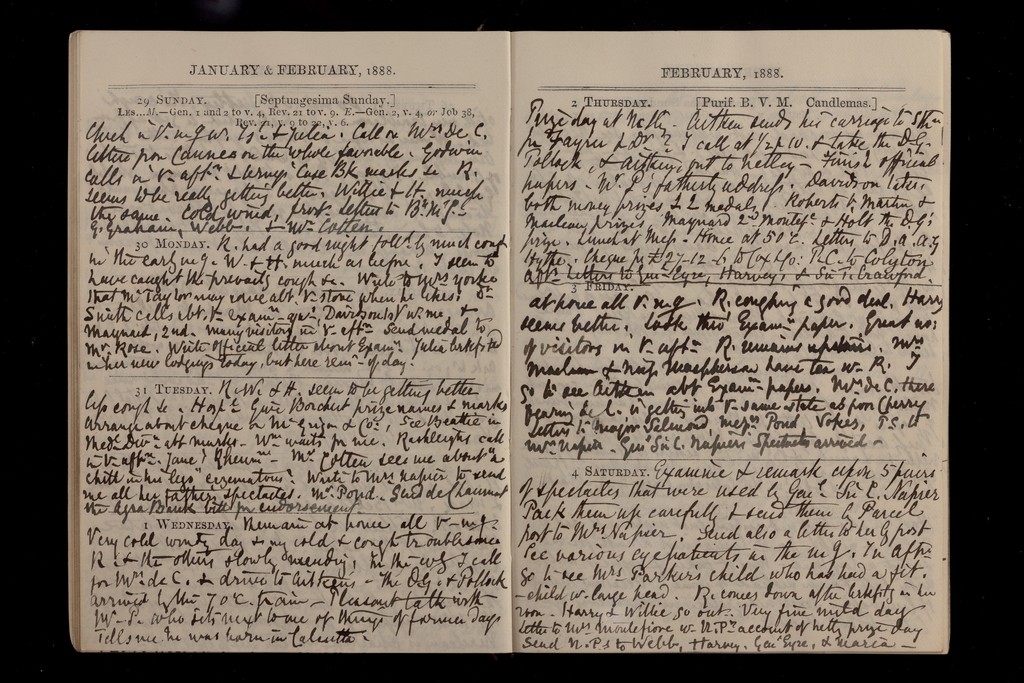 JANUARY & FEBRUARY, 1888.
29 SUNDAY. [Septuagesima Sunday.]
LES...M.—Gen. 1 and 2 to v. 4, Rev. 21 to v. 9. E.—Gen. 2, v. 4, or Job 38,
Rev. 21, v. 9 to 22, v. 6.
& Julia. Call on Mrs de C.
letters from Cannes on the whole favorable. Godwin
calls in aftn. Case Bk marks R.
seems to be really getting better. Willie & H. much
the same. Cold wind, frost. letters to
G. Graham, Webb. & Mr Cotten.
30 MONDAY. R. had a good night folld. by much cough
in the early mg. W. & H. much as before. I seem to
have caught the prevailg cough Write to Mrs Yorke
that Mr Taylor may come abt. stone when he likes. Dr
Smith calls abt. Examn. Davidson 1st &
Maynard, 2nd. Many visitors in aftn. Send medal to
Mr Rose. Write official letter about Examn. Julia
in her new lodgings today, but here remr. of day.
31 TUESDAY. R. W. & H. seem to be getting better
less cough. Give Borchert prize names & marks
arrange about cheque to McGrigor & Co., See Beattie in
Medl. Divn. abt marks. Wm waits for me. Rashleighs call
in aftn. Jane's Mr Cotten sees me about a
child in his legs. Write to Mrs Napier to send
me all her father's spectacles. Mr Pond. Send de Chaumont
the Agra Bank bill for endorsement
1 WEDNESDAY. Remain at home all mg.
Very cold windy day & my cold & cough troublesome
R. & the others slowly mending. In the evg I call
for Mr de C. & drive to Aitkens. The D.G. & Pollock
arrived by the 7 o'c. train. Pleasant talk with
Mr P. who sits next to me of things of former days
Tells me he was born in Calcutta.
FEBRUARY, 1888.
2 THURSDAY. [Purif. B. V. M. Candlemas.]
Prize day at Netley. Aitken sends his carriage to Stn.
for Fayrer I call at 1/2 p 10. & take the D.G.
Pollock, & Aitken, out to Netley. Finish official
papers. Mr P.'s father's address. Davidson takes
both money prizes & 2 medals, Roberts Martin &
Maclean prizes. Maynard 2nd Montef. & Holt the D.G's
prize. Lunch at Mess. Home at 5 o'c. Letters to
Hythe. Cheque for £27-12-6 to Cox & Co. P.C. to Colyton
Letters to Genl. Eyre, Harvey, & Sir T. Crawford.
3 FRIDAY.
at home all mg. R. coughing a good deal. Harry
seems better. Look thro' Examn. paper. Great no:
of visitors in aftn. R. remains upstairs. Mrs
Maclean & Miss Macpherson have tea w. R. I
go to see Aitken abt Examn. papers. Mrs de C. there
is getting into same state as poor Cherry
letters to Major Selmond, Messrs Pond Vokes, T.S.
Mrs Napier. Genl. Sir C. Napiers Spectacles arrived —
4 SATURDAY. Examine & remark upon 5 pairs
of spectacles that were used by Genl. Sir C. Napier
Pack them up carefully & send them by Parcel
post to Mrs Napier. Send also a letter to her by post
See various eye patients in the mg. In aftn.
go to see Mrs Parker's child who has had a fit.
— child w. large head. R. comes down after in her
room. Harry & Willie go out. Very fine mild day
letter to Mrs Montefiore w. N.Pr. account of Netley prize day
Send N.Ps to Webb, Harvey, Genl Eyre, & Maria —